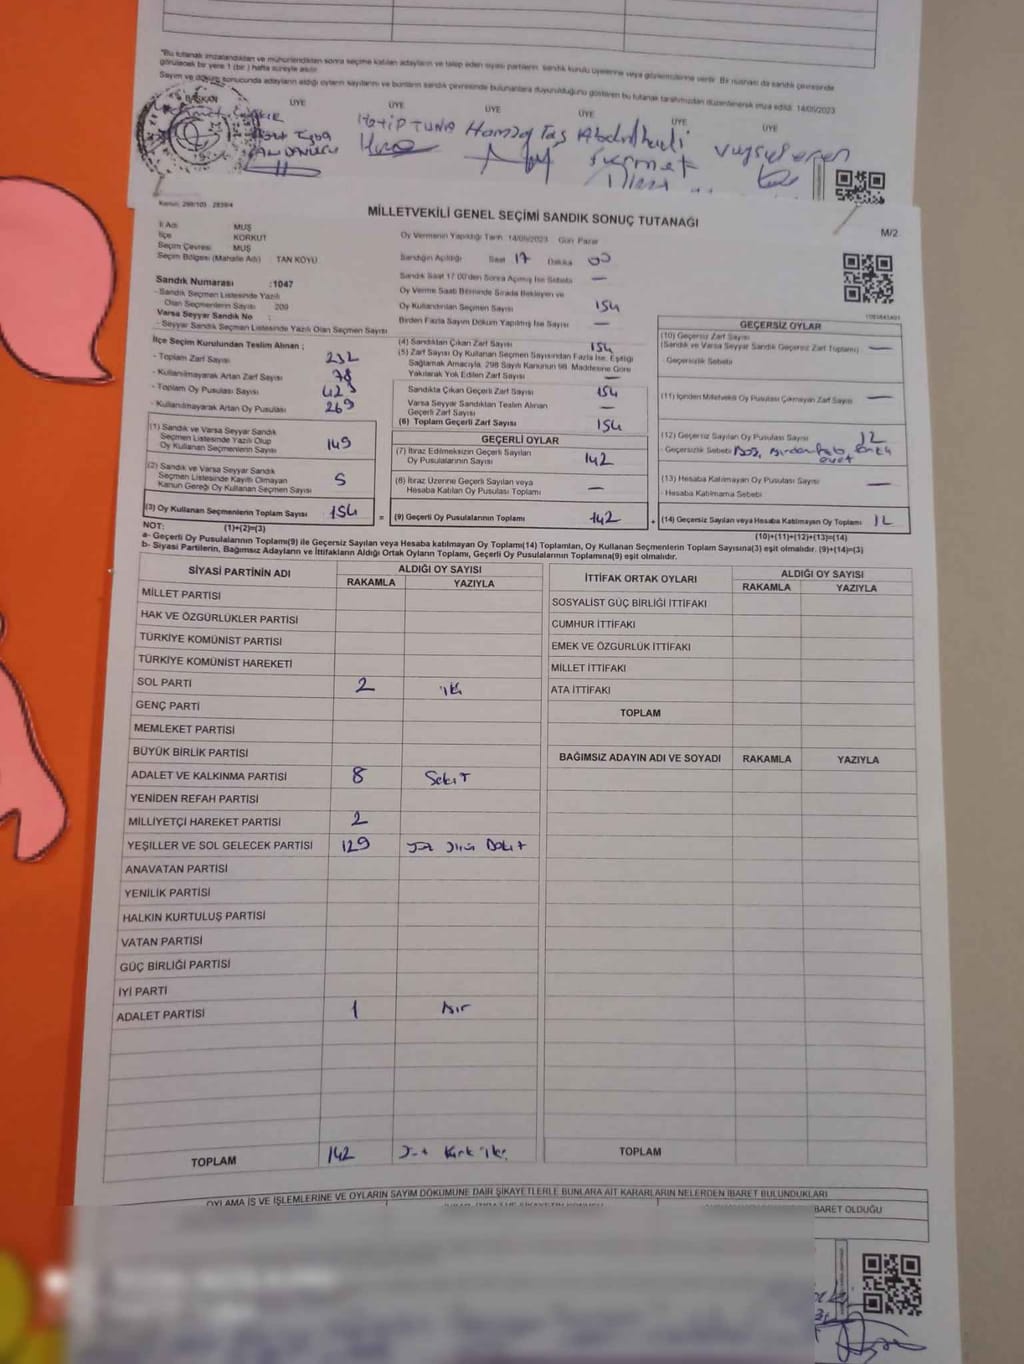 *Bu tutanak imzalandıktan ve mühürlendikten sonra seçime katılan adayların ve talep eden siyasi partilerin, sandık kurulu üyelerine veya gözlemcilerine verilir. Bir nüshası da sandık çevresinde
görülecek bir yere 1 (bir) hafta süreyle asılır.
Sayım ve döküm sonucunda adayların aldığı oyların sayılarını ve bunların sandık çevresinde bulunanlara duyurulduğunu gösteren bu tutanak tarafımızdan düzenlenerek imza edildi. 14/05/2023
BAŞKAN ÜYE ÜYE ÜYE ÜYE ÜYE ÜYE
Hatip TUNA Hamza Taş
MİLLETVEKİLİ GENEL SEÇİMİ SANDIK SONUÇ TUTANAĞI
M/2
İl Adı MUŞ
İlçe KORKUT
Seçim Çevresi MUŞ
Seçim Bölgesi (Mahalle Adı) TAN KÖYÜ
Sandık Numarası :1047
- Sandık Seçmen Listesinde Yazılı
Olan Seçmenlerin Sayısı 209
Varsa Seyyar Sandık No :
- Seyyar Sandık Seçmen Listesinde Yazılı Olan Seçmen Sayısı
Oy Vermenin Yapıldığı Tarih 14/05/2023 Gün Pazar
Sandığın Açıldığı Saat 17 Dakika 00
Sandık Saat 17:00'den Sonra Açılmış İse Sebebi —
Oy Verme Saati Bitiminde Sırada Bekleyen ve
Oy Kullandırılan Seçmen Sayısı 154
Birden Fazla Sayım Döküm Yapılmış İse Sayısı —
İlçe Seçim Kurulundan Teslim Alınan ;
- Toplam Zarf Sayısı 232
- Kullanılmayarak Artan Zarf Sayısı 78
- Toplam Oy Pusulası Sayısı
- Kullanılmayarak Artan Oy Pusulası 269
(1) Sandık ve Varsa Seyyar Sandık
Seçmen Listesinde Yazılı Olup
Oy Kullanan Seçmenlerin Sayısı 149
(2) Sandık ve Varsa Seyyar Sandık
Seçmen Listesinde Kaydı Olmayan
Kanun Gereği Oy Kullanan Seçmen Sayısı 5
(3) Oy Kullanan Seçmenlerin Toplam Sayısı 154
(4) Sandıktan Çıkan Zarf Sayısı 154
(5) Zarf Sayısı Oy Kullanan Seçmen Sayısından Fazla İse, Eşitliği
Sağlamak Amacıyla, 298 Sayılı Kanunun 98. Maddesine Göre
Yakılarak Yok Edilen Zarf Sayısı —
Sandıkta Çıkan Geçerli Zarf Sayısı 154
Varsa Seyyar Sandıktan Teslim Alınan
Geçerli Zarf Sayısı —
(6) Toplam Geçerli Zarf Sayısı 154
GEÇERLİ OYLAR
(7) İtiraz Edilmeksizin Geçerli Sayılan
Oy Pusulalarının Sayısı 142
(8) İtiraz Üzerine Geçerli Sayılan veya
Hesaba Katılan Oy Pusulası Toplamı —
= (9) Geçerli Oy Pusulalarının Toplamı 142
GEÇERSİZ OYLAR
(10) Geçersiz Zarf Sayısı
(Sandık ve Varsa Seyyar Sandık Geçersiz Zarf Toplamı) —
- Geçersizlik Sebebi
(11) İçinden Milletvekili Oy Pusulası Çıkmayan Zarf Sayısı —
(12) Geçersiz Sayılan Oy Pusulası Sayısı 12
- Geçersizlik Sebebi
(13) Hesaba Katılmayan Oy Pusulası Sayısı —
- Hesaba Katılmama Sebebi
+ (14) Geçersiz Sayılan veya Hesaba Katılmayan Oy Toplamı 12
NOT: (1)+(2)=(3) (10)+(11)+(12)+(13)=(14)
a- Geçerli Oy Pusulalarının Toplamı(9) ile Geçersiz Sayılan veya Hesaba katılmayan Oy Toplamı(14) Toplamları, Oy Kullanan Seçmenlerin Toplam Sayısına(3) eşit olmalıdır. (9)+(14)=(3)
b- Siyasi Partilerin, Bağımsız Adayların ve İttifakların Aldığı Ortak Oyların Toplamı, Geçerli Oy Pusulalarının Toplamına(9) eşit olmalıdır.
SİYASİ PARTİNİN ADI ALDIĞI OY SAYISI
RAKAMLA YAZIYLA
MİLLET PARTİSİ
HAK VE ÖZGÜRLÜKLER PARTİSİ
TÜRKİYE KOMÜNİST PARTİSİ
TÜRKİYE KOMÜNİST HAREKETİ
SOL PARTİ 2 iki
GENÇ PARTİ
MEMLEKET PARTİSİ
BÜYÜK BİRLİK PARTİSİ
ADALET VE KALKINMA PARTİSİ 8 Sekiz
YENİDEN REFAH PARTİSİ
MİLLİYETÇİ HAREKET PARTİSİ 2
YEŞİLLER VE SOL GELECEK PARTİSİ 129
ANAVATAN PARTİSİ
YENİLİK PARTİSİ
HALKIN KURTULUŞ PARTİSİ
VATAN PARTİSİ
GÜÇ BİRLİĞİ PARTİSİ
İYİ PARTİ
ADALET PARTİSİ 1 Bir
TOPLAM 142
İTTİFAK ORTAK OYLARI ALDIĞI OY SAYISI
RAKAMLA YAZIYLA
SOSYALİST GÜÇ BİRLİĞİ İTTİFAKI
CUMHUR İTTİFAKI
EMEK VE ÖZGÜRLÜK İTTİFAKI
MİLLET İTTİFAKI
ATA İTTİFAKI
TOPLAM
BAĞIMSIZ ADAYIN ADI VE SOYADI RAKAMLA YAZIYLA
TOPLAM
OYLAMA İŞ VE İŞLEMLERİNE VE OYLARIN SAYIM DÖKÜMÜNE DAİR ŞİKAYETLERLE BUNLARA AİT KARARLARIN NELERDEN İBARET BULUNDUKLARI
İBARET OLDUĞU